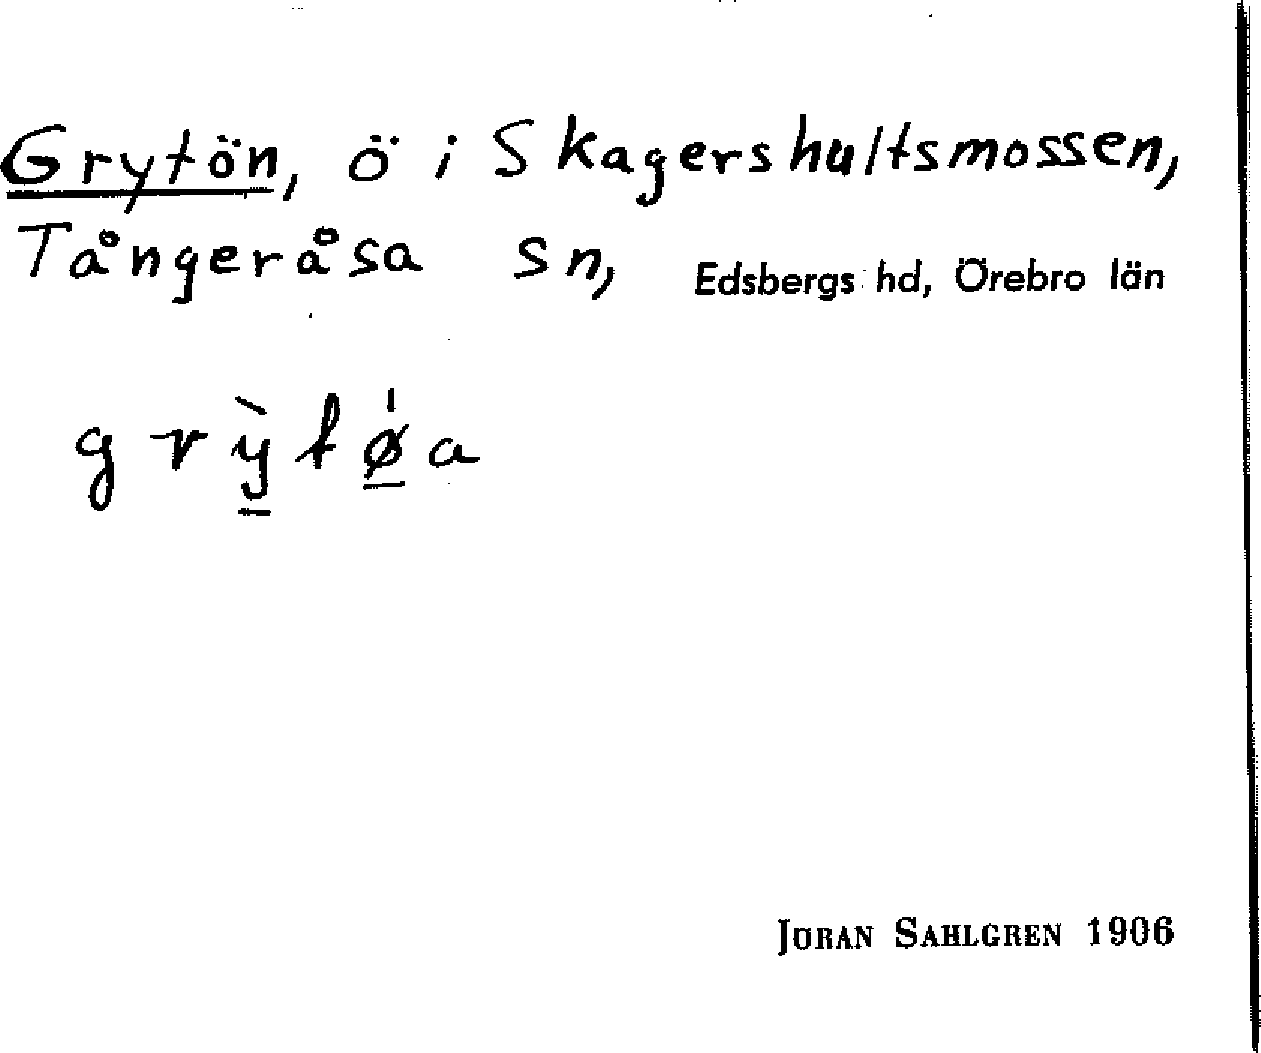 Grytön, ö i Skagershultsmossen,
Tångeråsa sn, Edsbergs hd, Örebro län
grỳtø̍a
JÖRAN SAHLGREN 1906